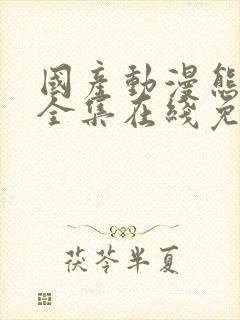 國產動漫態
全集在綫免
茯苓半夏